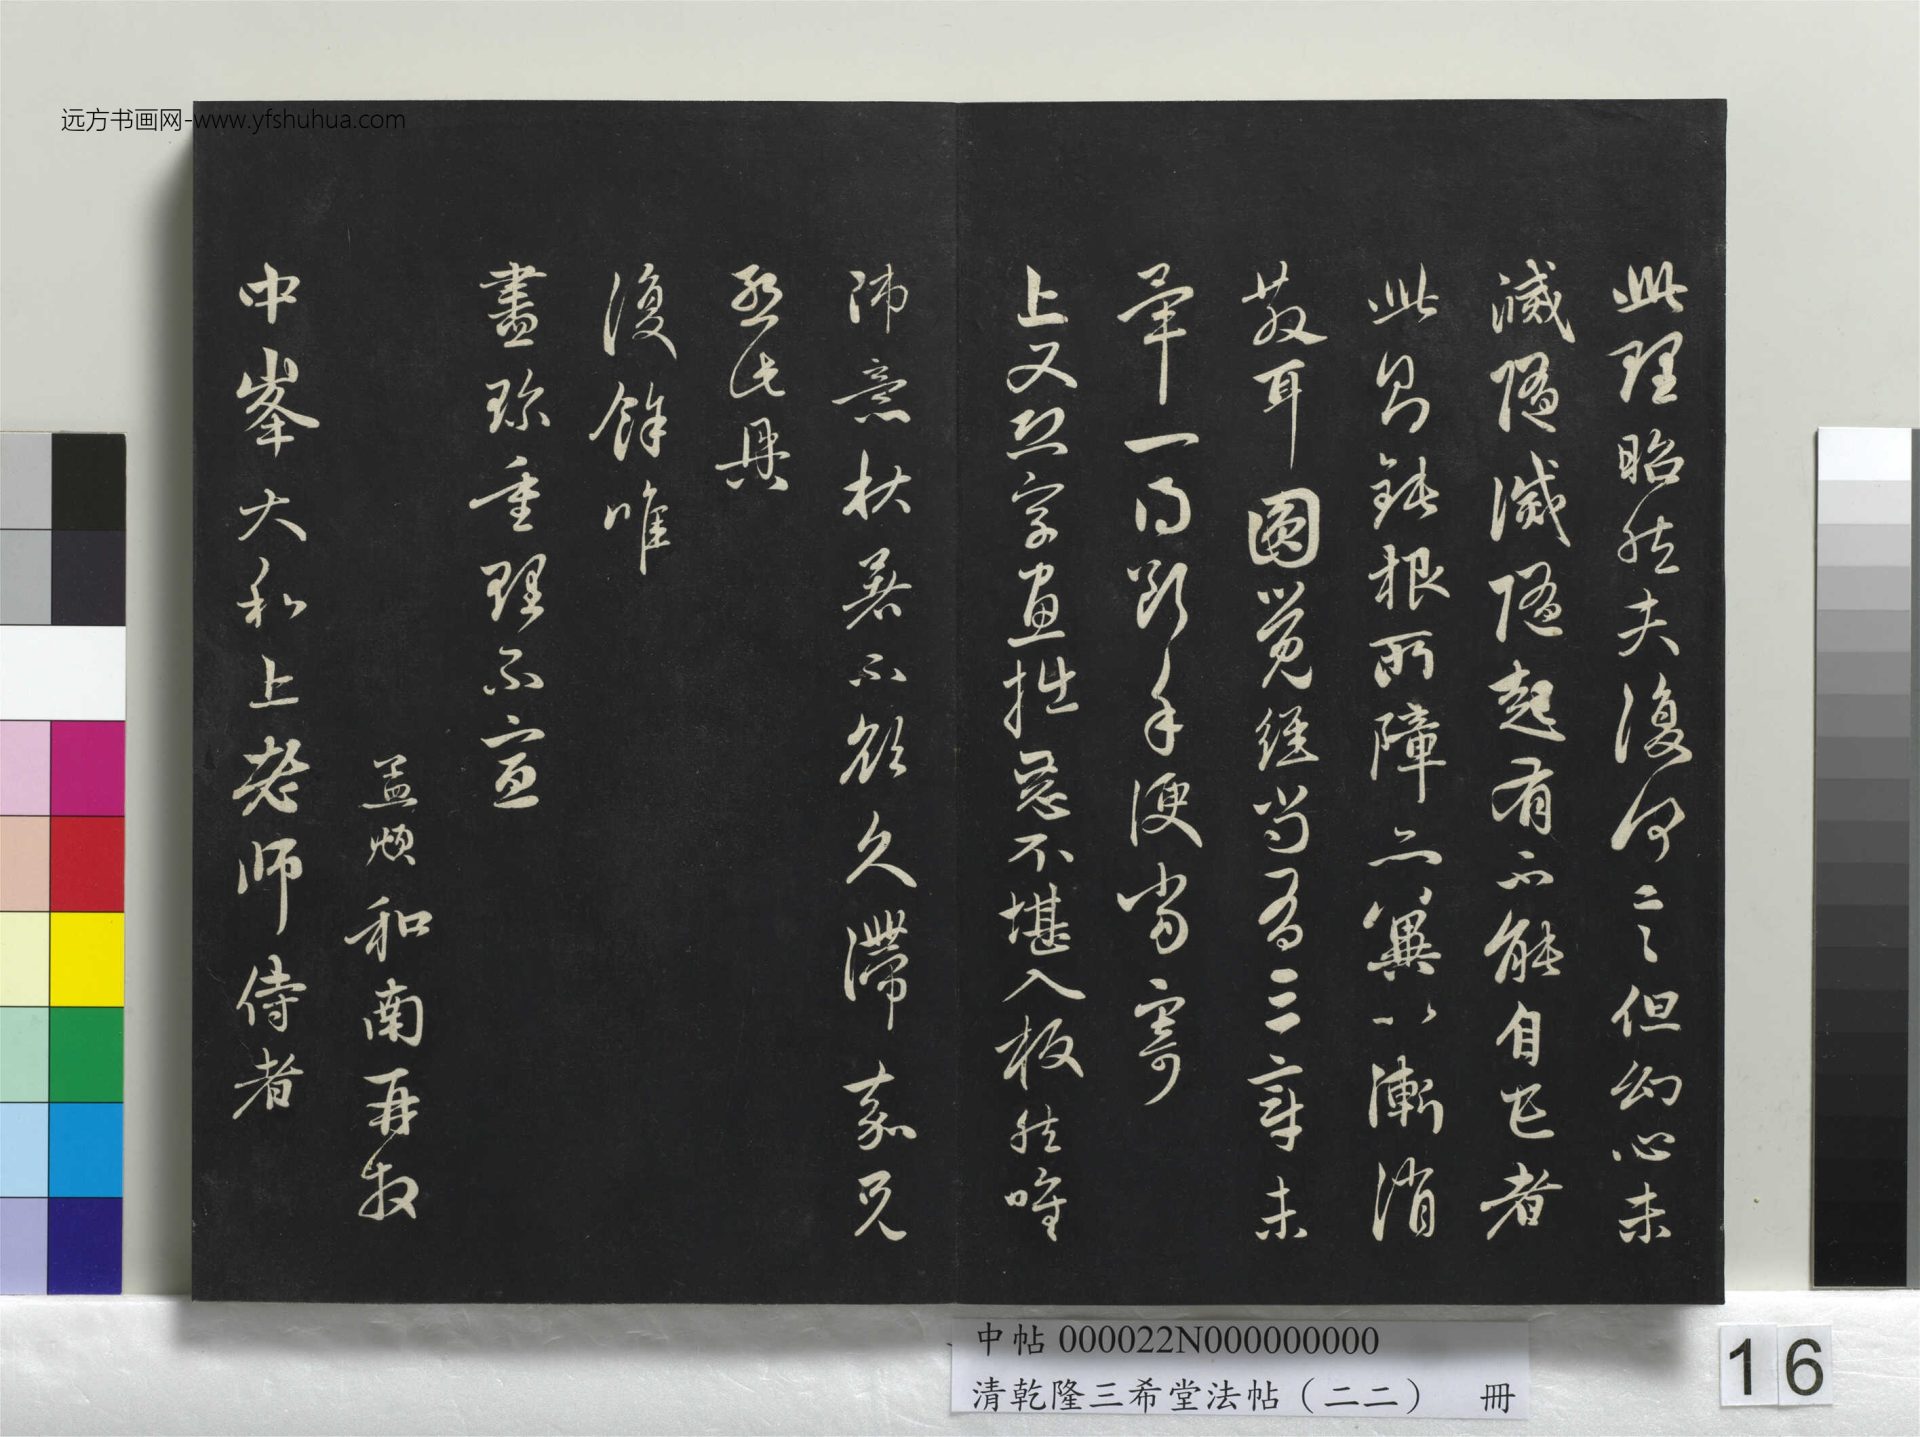 远方书画网-www.yfshuhua.com
此理昭然夫復何言但幻心未
滅隨滅隨起有不能自已者
此則鈍根所障亦冀以漸消
散耳圓覺經尚有三章未
畢一得斷手便當寄
上又恐字畫拙惡不堪入板然唯
師意杖著不敢久滯嘉兄
亟此具
復餘唯
盡珍重理不宣
孟頫和南再拜
中峯大和上老師侍者
中帖 000022N000000000
清乾隆三希堂法帖（二二） 冊
16